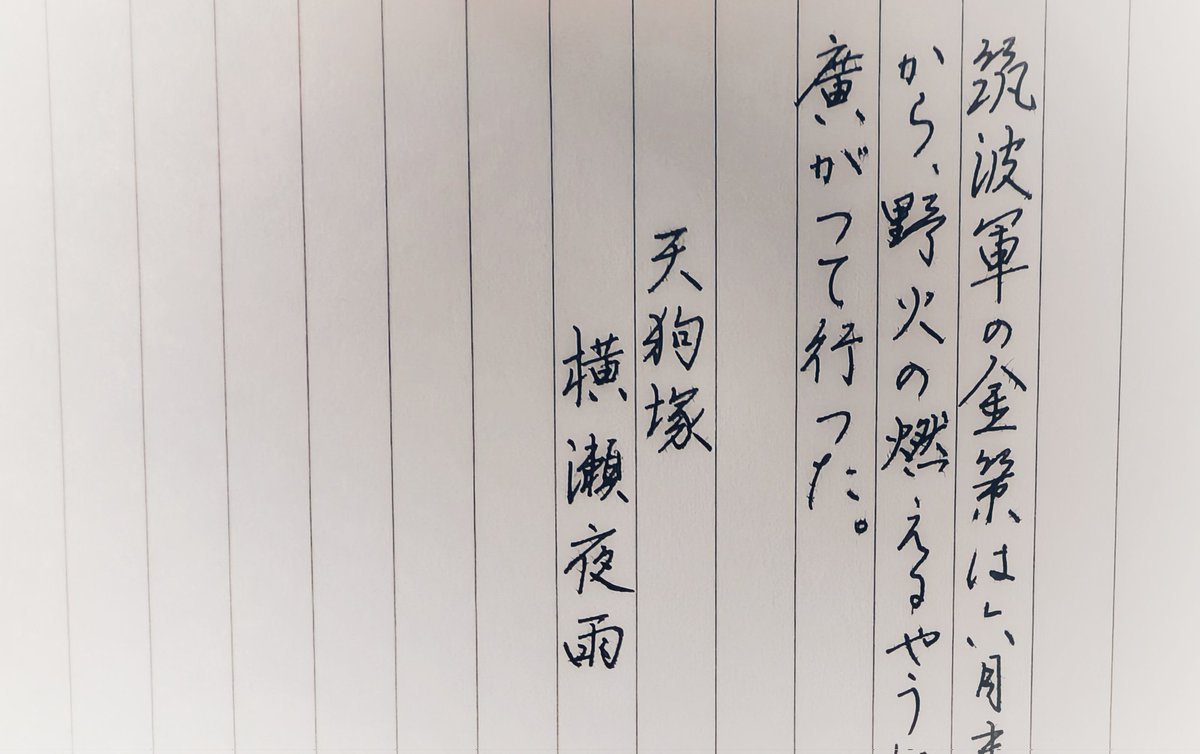 筑波軍の金策は六月
から、野火の燃えるやう
廣がつて行つた。
天狗塚
横瀬夜雨